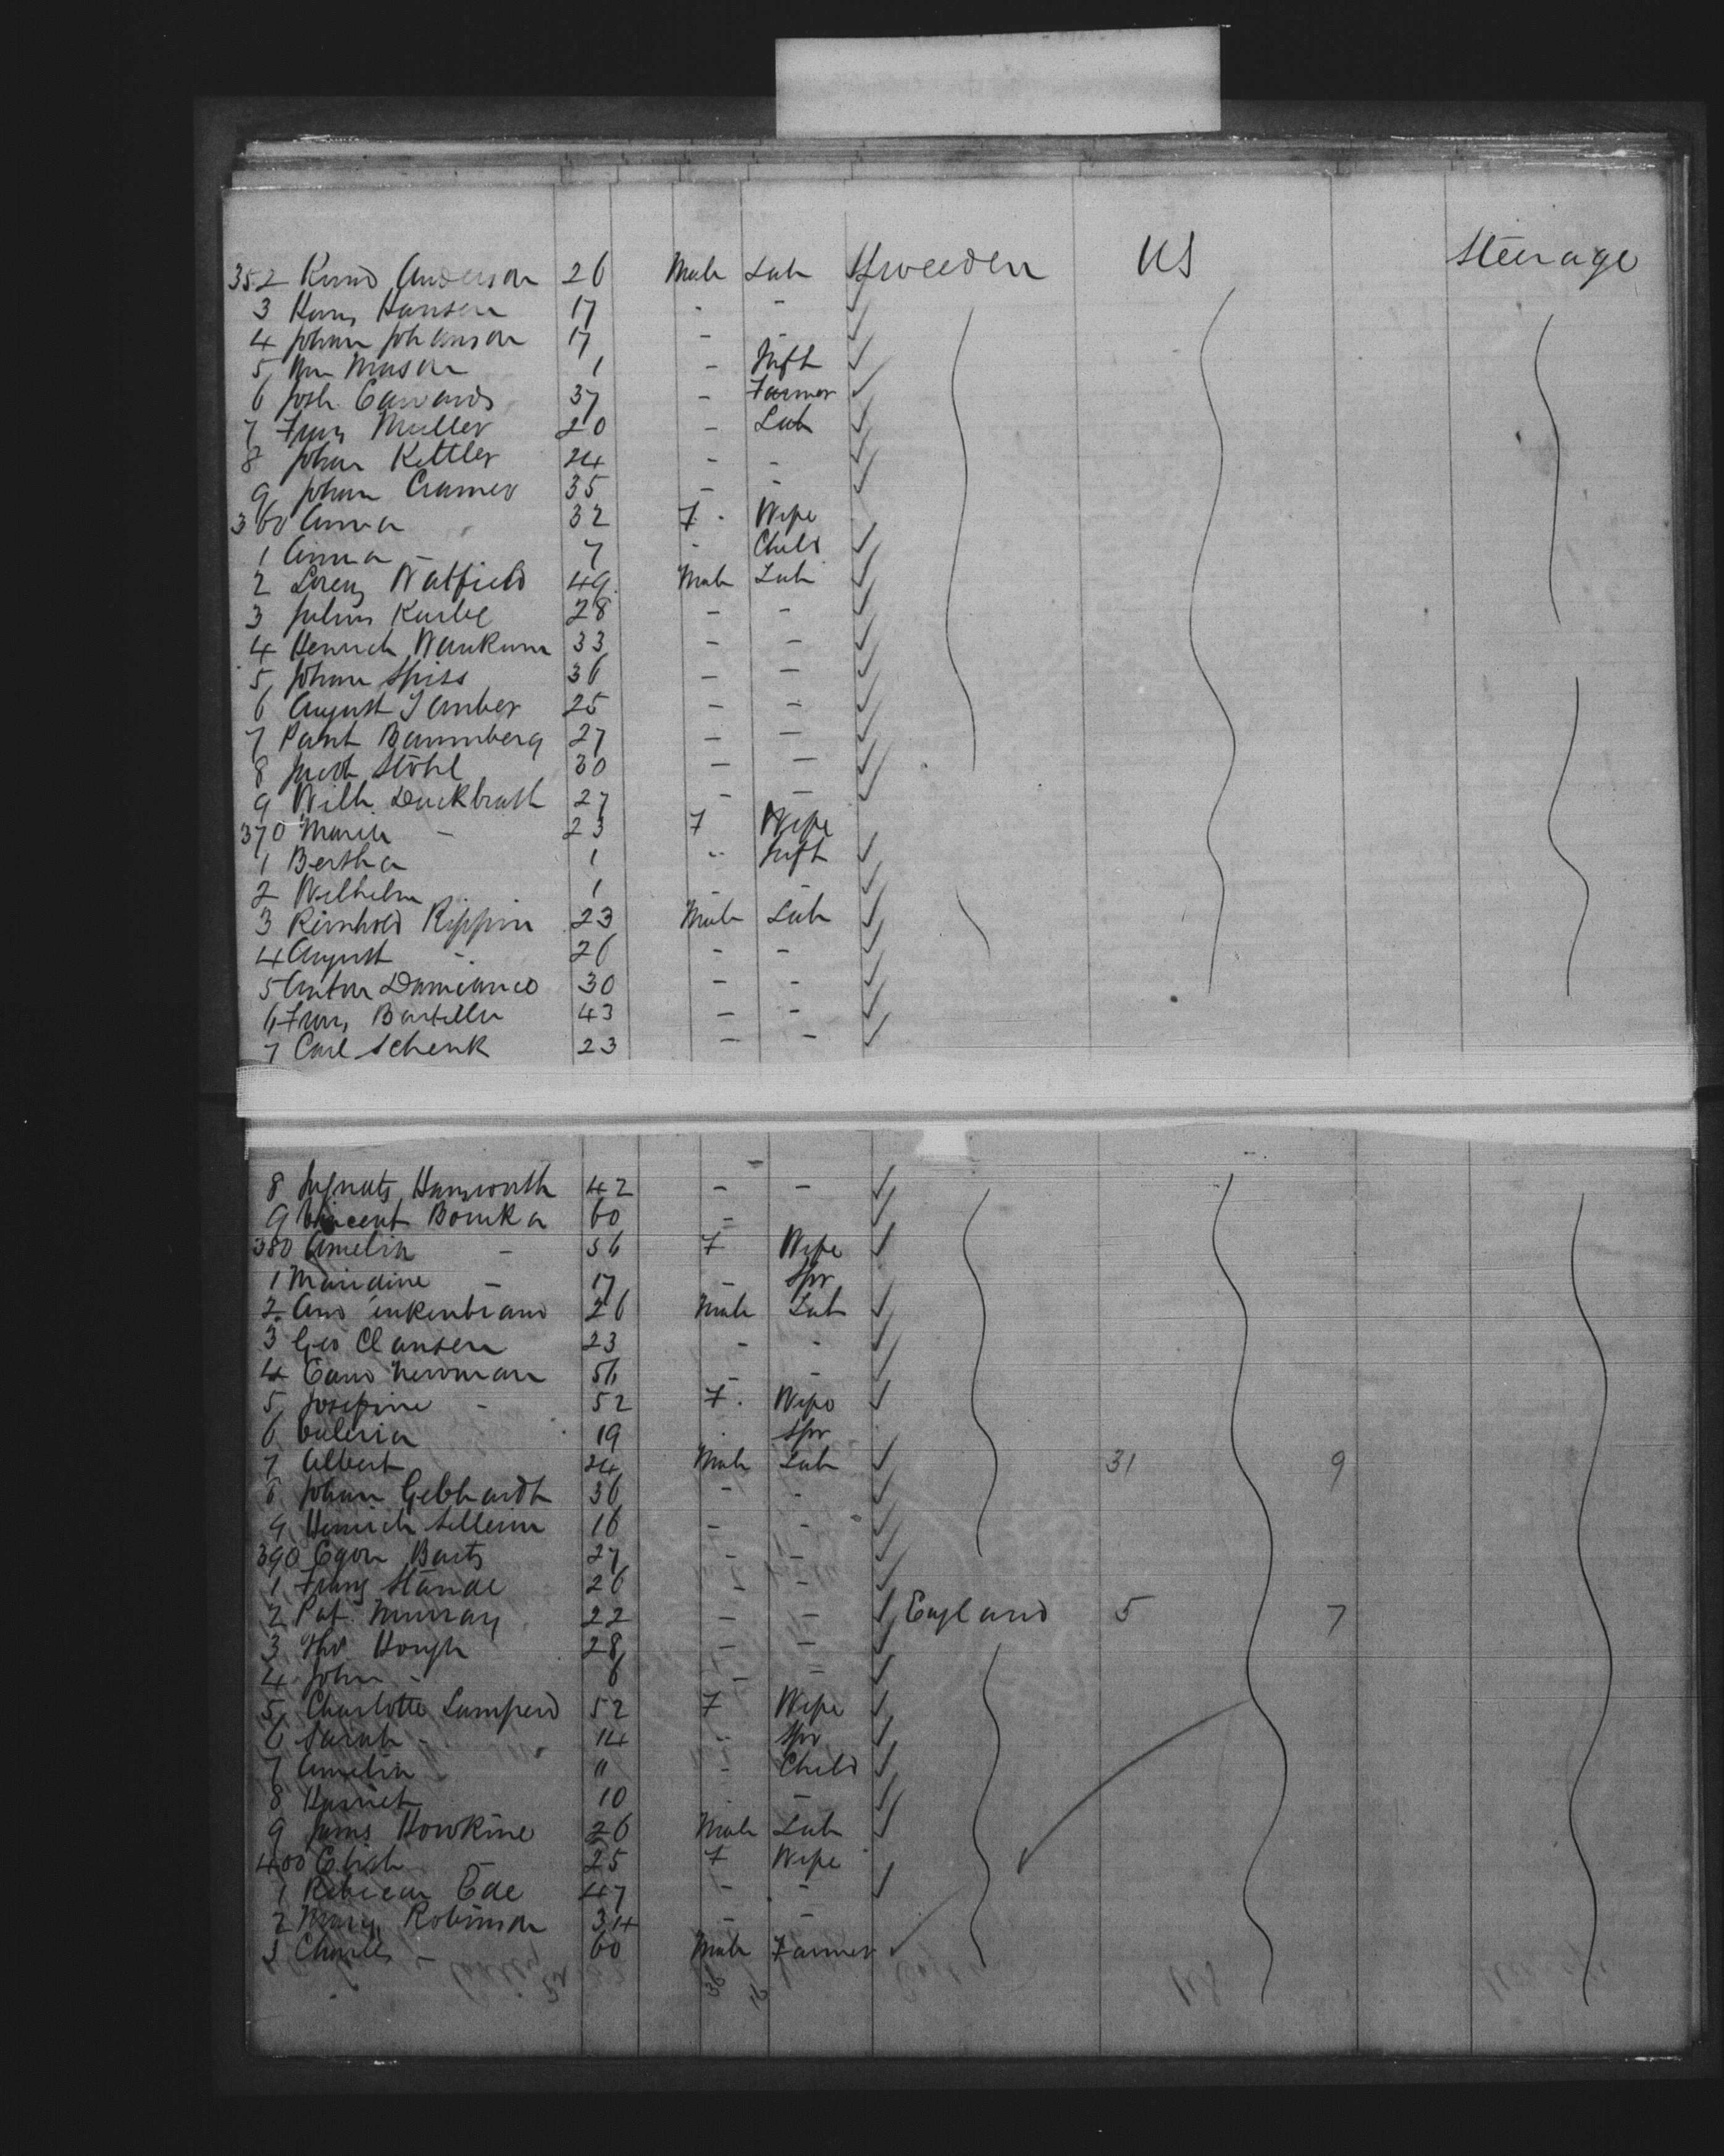 352 Knud Anderson 26 Male Lab Sweeden US Steerage
3 Hans Hansen 17 - -
4 Johan Johanson 17 - -
5 Wm Mason 1 - Inft
6 Josh Edwards 37 - Farmer
7 Franz Muller 20 - Lab
8 Johan Kettler 24 - -
9 Johan Cramer 35 - -
360 Anna 32 F. Wife
1 Anna - 7 - Child
2 Lorenz Watfield 49 Male Lab
3 Julius Karbe 28 - -
4 Henrich Wankum 33 - -
5 Johan Spiss 36 - -
6 August Tamber 25 - -
7 Bannberg 27 - -
8 Jacob Stöhl 30 - -
9 Wilh Duckbrath 27 - -
370 Maria - 23 F Wife
1 Bertha 1 - Inft
2 Wilhelm 1 - -
3 Reinhold Rippin 23 Male Lab
4 August - 26 - -
5 Anton Damianco 30 - -
6 Franz Bartella 43 - -
7 Carl Schenk 23 - -
8 Hansworth 42 - -
9 Vincent Bomka 60 -
380 Amelia - 56 F Wife
1 - 17 - Spr
2 And 26 Male Lab
3 Geo Clansen 23 - -
4 Edwd Newman 56 - -
5 Josefine - 52 F. Wife
6 Valeria 19 Spr
7 Albert 24 Male Lab 31 9
8 Johan Gebhardt 36 - -
9 Henrich Sellerin 16 - -
390 Egon Barts 27 - -
1 Franz Stande 26 - -
2 Pat Murray 22 - - England 5 7
3 Tho Hough 28 - -
4 John - 8 - -
5 Charlotte Lamperd 52 F Wife
6 Sarah - 14 - Spr
7 Amelia 11 - Child
8 Harriet 10 - -
9 James Hawkine 26 Male Lab
400 - 25 F Wife
1 Rebecca Ede 47 - -
2 Mary Robinson 34 - -
3 Charles - 60 Male Farmer